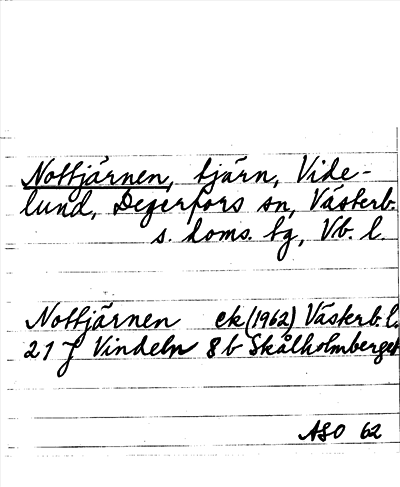 Nottjärnen, tjärn, Vide-
lund, Degerfors sn, Västerb.
s. doms. tg, Vb. l.
Nottjärnen ek (1962) Västerb. l.
21 J Vindeln 8b Skålholmberget
ASO 62